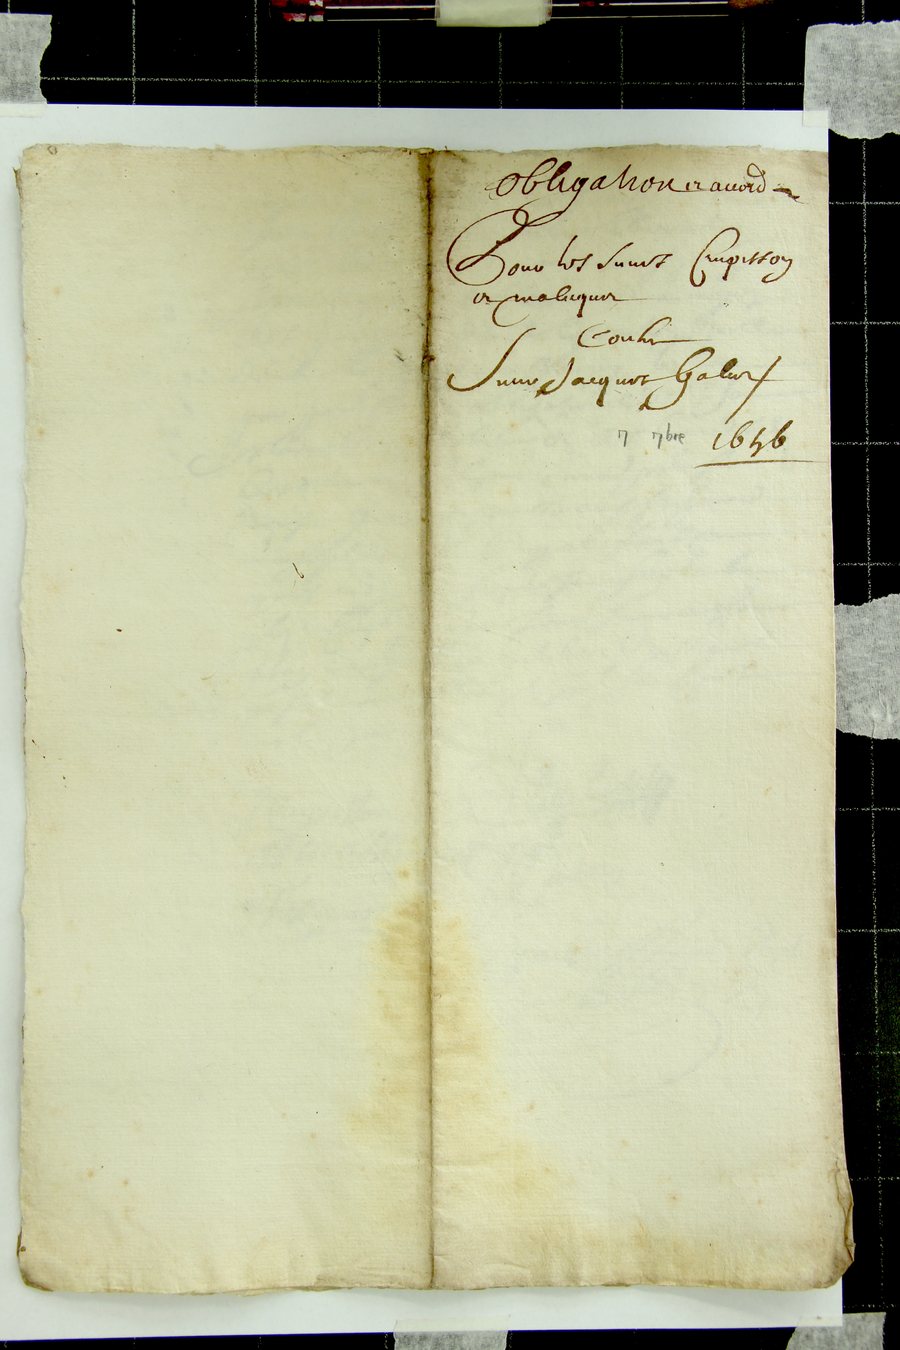 obligation et acord
Pour les sieurs Crupisson
et malicques
Contre
Sieur Jacques Galier
7 7bre 1656